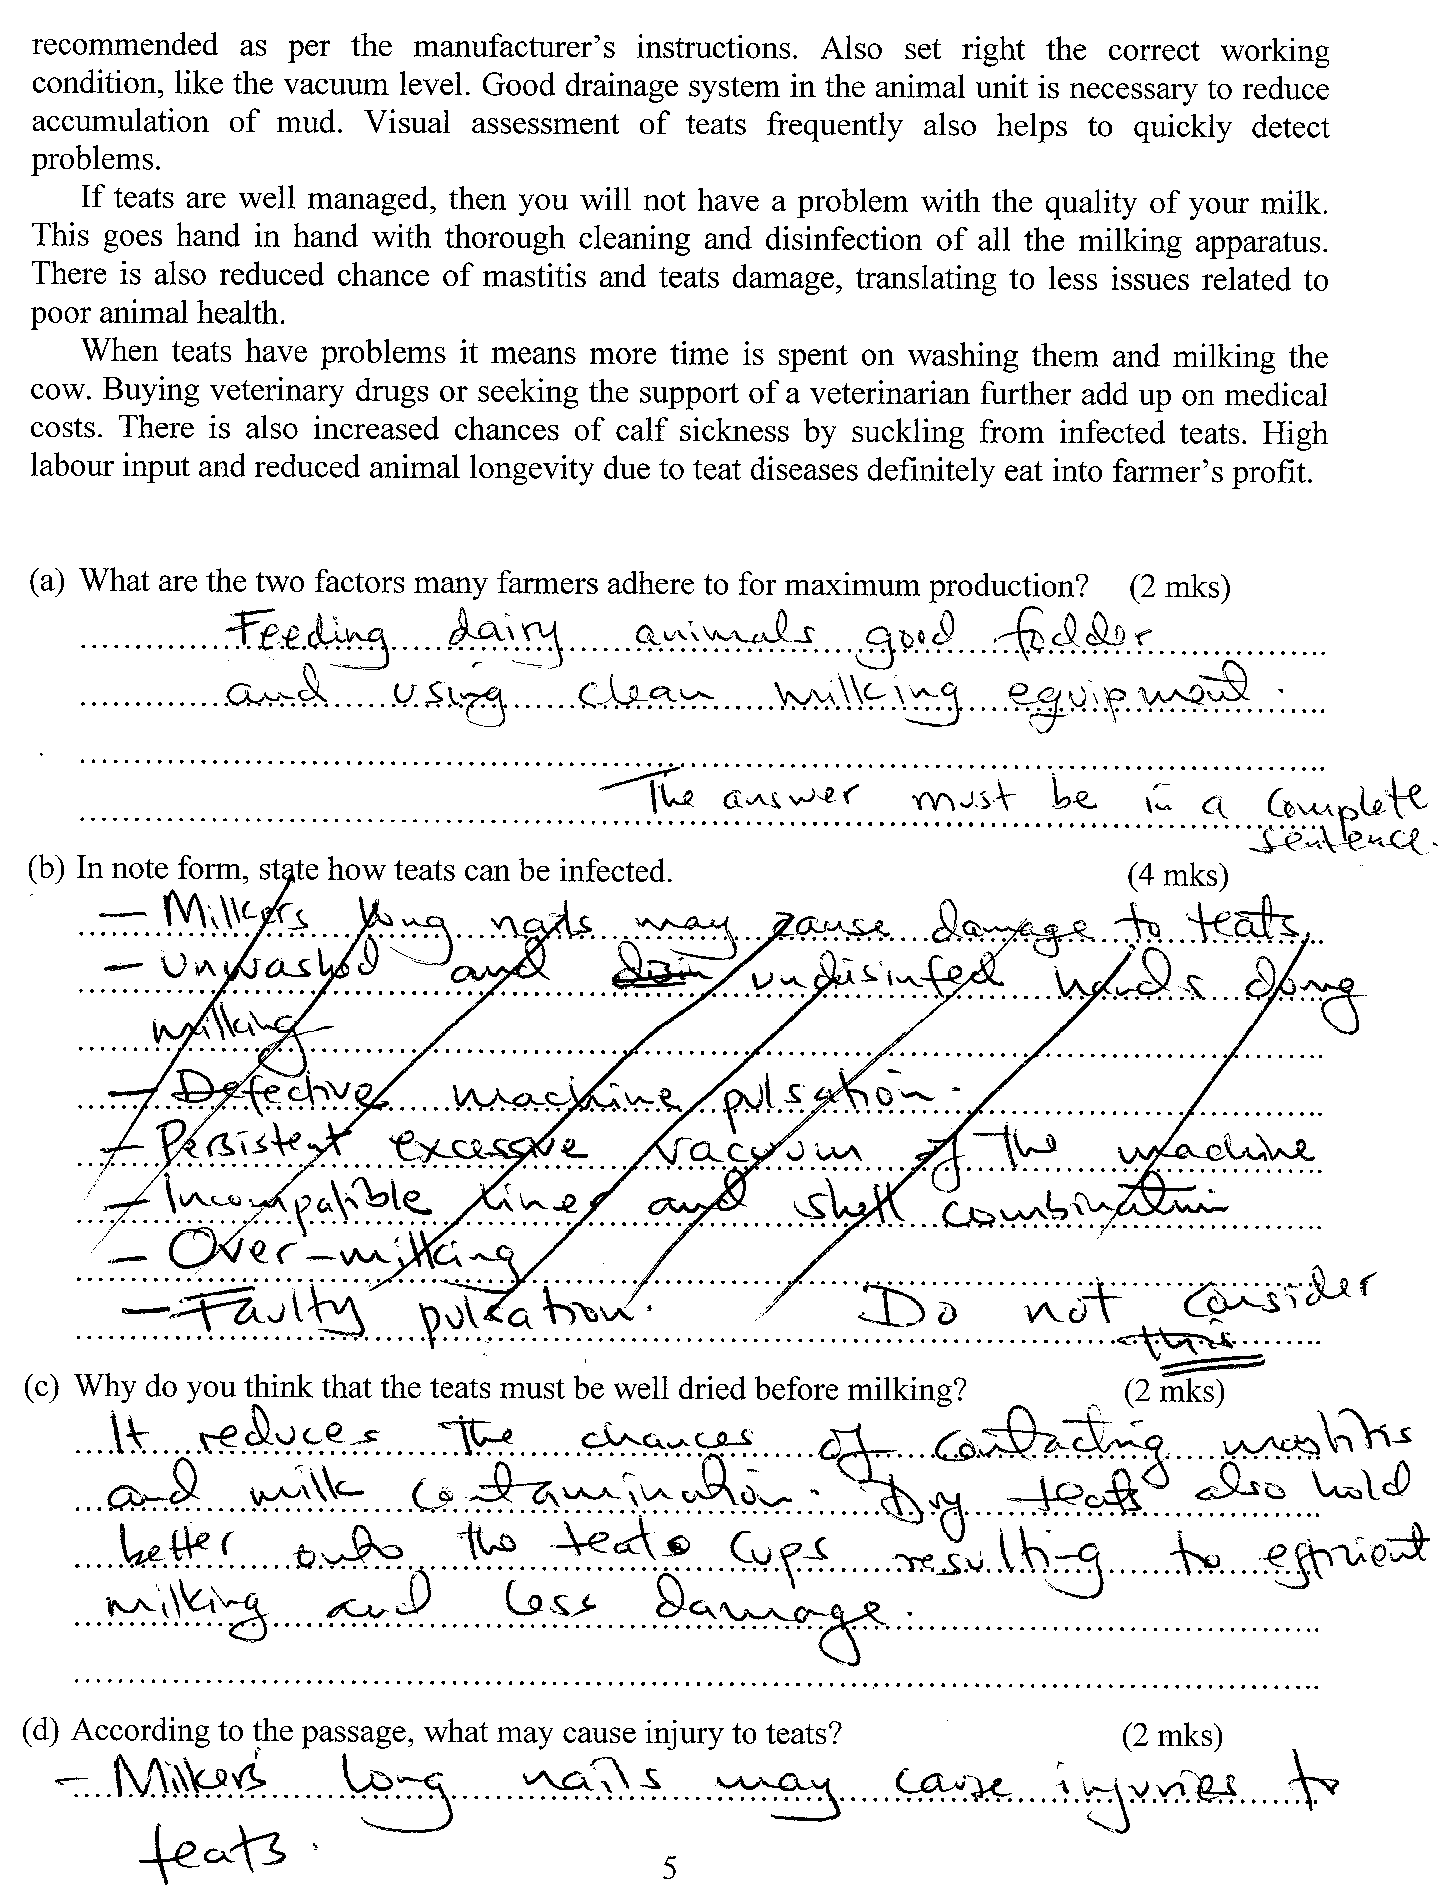 recommended as per the manufacturer's instructions. Also set right the correct working
condition, like the vacuum level. Good drainage system in the animal unit is necessary to reduce
accumulation of mud. Visual assessment of teats frequently also helps to quickly detect
problems.
If teats are well managed, then you will not have a problem with the quality of your milk.
This goes hand in hand with thorough cleaning and disinfection of all the milking apparatus.
There is also reduced chance of mastitis and teats damage, translating to less issues related to
poor animal health.
When teats have problems it means more time is spent on washing them and milking the
cow. Buying veterinary drugs or seeking the support of a veterinarian further add up on medical
costs. There is also increased chances of calf sickness by suckling from infected teats. High
labour input and reduced animal longevity due to teat diseases definitely eat into farmer's profit.
(a) What are the two factors many farmers adhere to for maximum production? (2 mks)
Feeding dairy animals good fodder
and using clean milking equipment.
The answer must be in a complete
sentence.
(b) In note form, state how teats can be infected. (4 mks)
– Milkers long nails may cause damage to teats
– Unwashed and undisinfed hands dong
milking
– Defective machine pulsation.
– Persistent excessive vacuum of the machine
– Incompatible liner and shell combination
– Over-milking
– Faulty pulsation. Do not consider
this
(c) Why do you think that the teats must be well dried before milking? (2 mks)
It reduces the chances of contacting mastitis
and milk contamination. Dry teats also hold
better onto the teats cups resulting to efficient
milking and less damage.
(d) According to the passage, what may cause injury to teats? (2 mks)
– Milker's long nails may cause injuries to
teats.
5